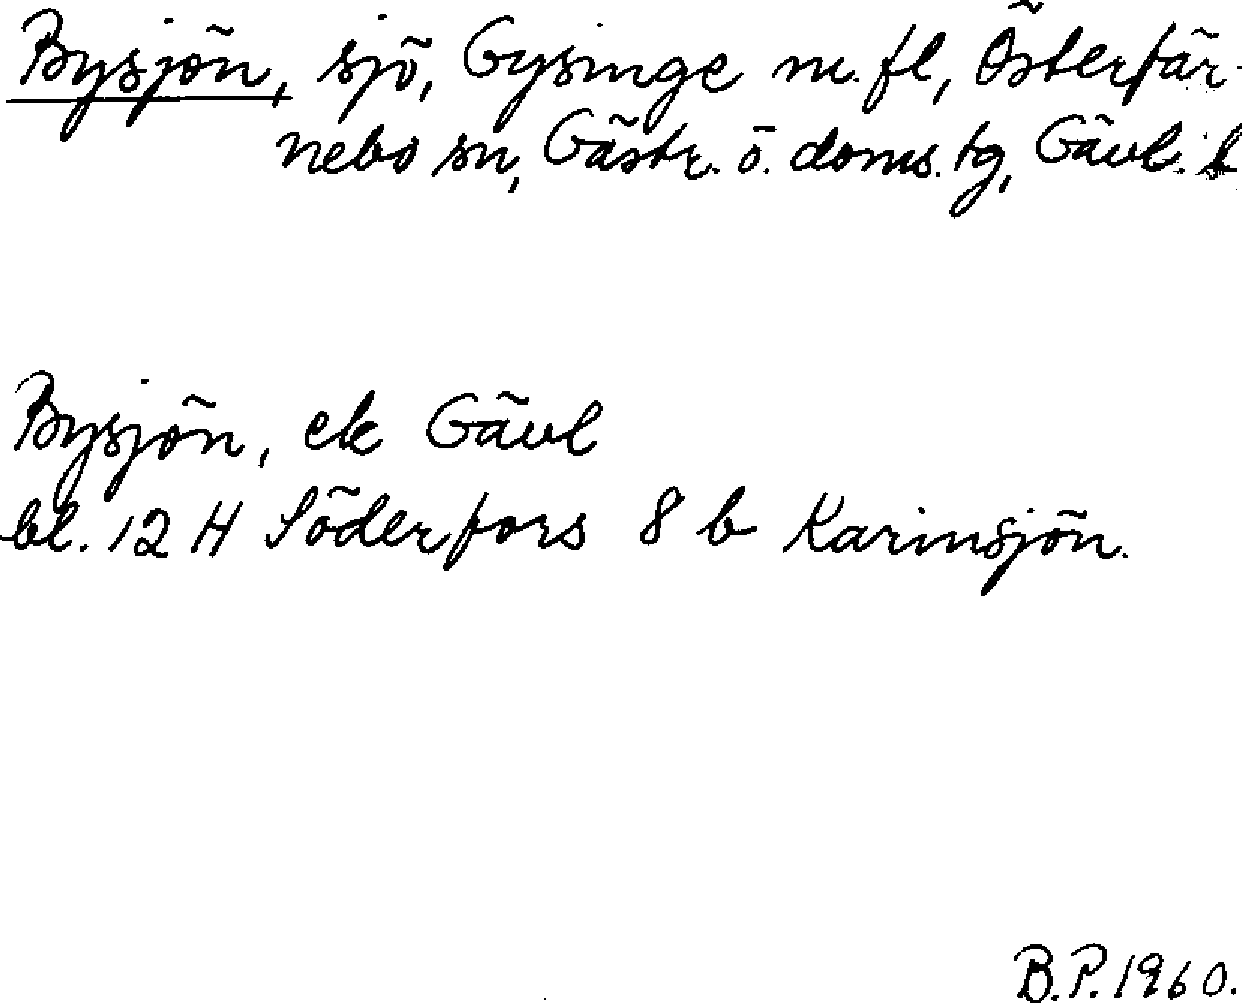 Bysjön, sjö, Gysinge m. fl, Österfär-
nebo sn, Gästr. ö. doms. tg, Gävl. l
Bysjön, ek Gävl
bl. 12 H Söderfors 8 b Karinsjön.
B.P. 1960.